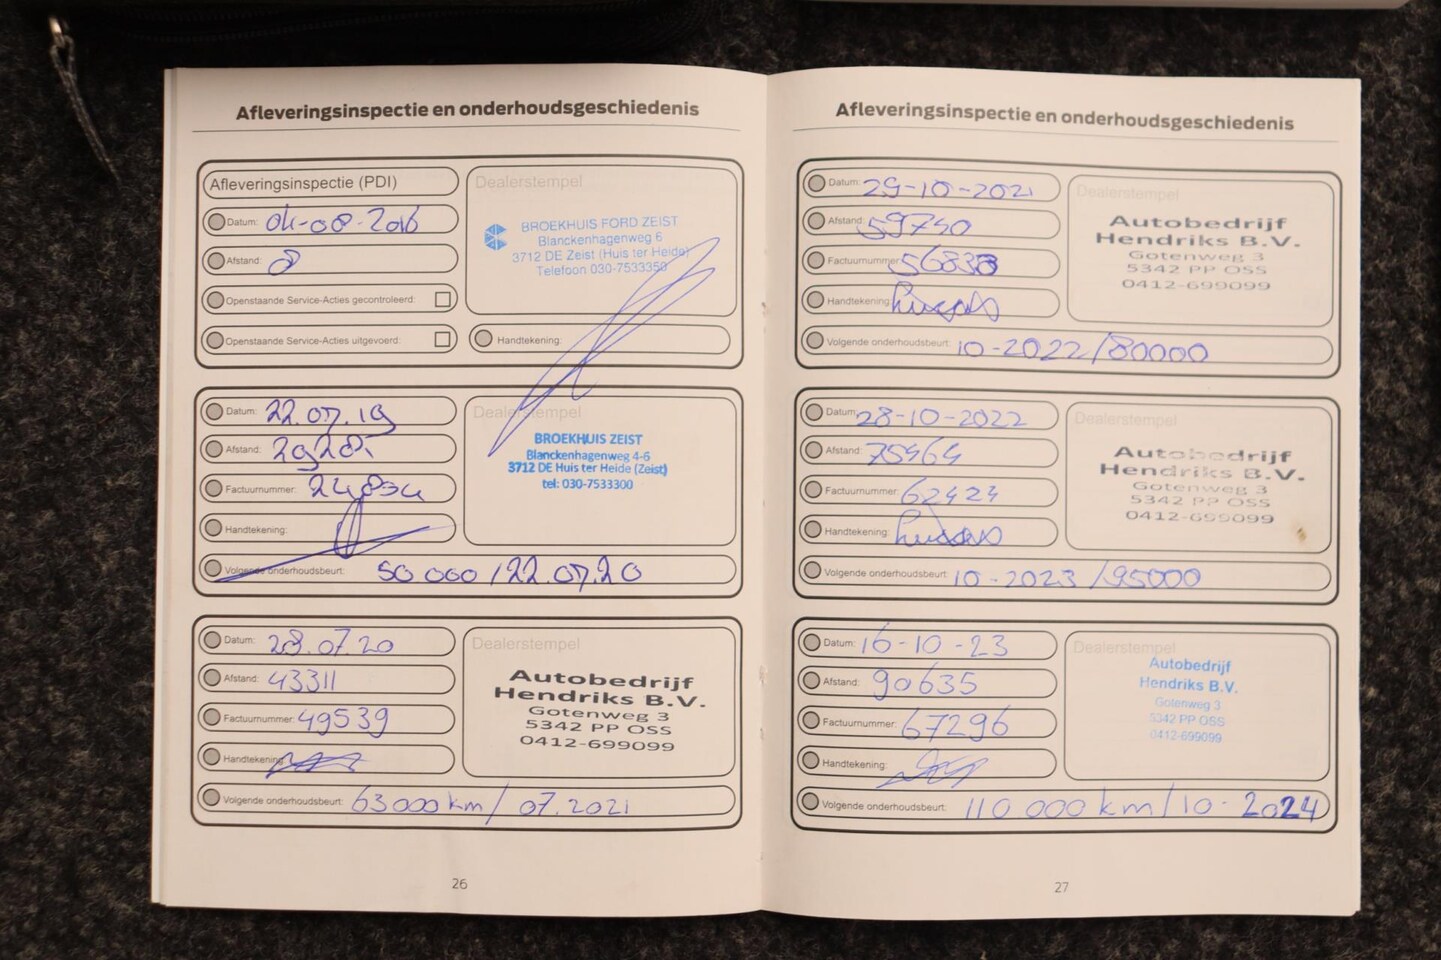 Afleveringsinspectie en onderhoudsgeschiedenis
Afleveringsinspectie (PDI)
Datum: 04-08-2016
Afstand: 8
Openstaande Service-Acties gecontroleerd:
Openstaande Service-Acties uitgevoerd:
Dealerstempel
BROEKHUIS FORD ZEIST
Blanckenhagenweg 6
3712 DE Zeist (Huis ter Heide)
Telefoon 030-7533350
Handtekening:
Datum: 22.07.19
Afstand:
Factuurnummer:
Handtekening:
Volgende onderhoudsbeurt: 50 000 / 22.07.20
Dealerstempel
BROEKHUIS ZEIST
Blanckenhagenweg 4-6
3712 DE Huis ter Heide (Zeist)
tel: 030-7533300
Datum: 28.07.20
Afstand: 43311
Factuurnummer: 49539
Handtekening:
Volgende onderhoudsbeurt: 63000 km / 07.2021
Dealerstempel
Autobedrijf
Hendriks B.V.
Gotenweg 3
5342 PP OSS
0412-699099
26
Afleveringsinspectie en onderhoudsgeschiedenis
Datum: 29-10-2021
Afstand: 59740
Factuurnummer: 56838
Handtekening:
Volgende onderhoudsbeurt: 10-2022/80000
Dealerstempel
Autobedrijf
Hendriks B.V.
Gotenweg 3
5342 PP OSS
0412-699099
Datum: 28-10-2022
Afstand: 75464
Factuurnummer: 62424
Handtekening:
Volgende onderhoudsbeurt: 10-2023 /95000
Dealerstempel
Autobedrijf
Hendriks B.V.
Gotenweg 3
5342 PP OSS
0412-699099
Datum: 16-10-23
Afstand: 90635
Factuurnummer: 67296
Handtekening:
Volgende onderhoudsbeurt: 110 000 km/10-2024
Dealerstempel
Autobedrijf
Hendriks B.V.
Gotenweg 3
5342 PP OSS
0412-699099
27